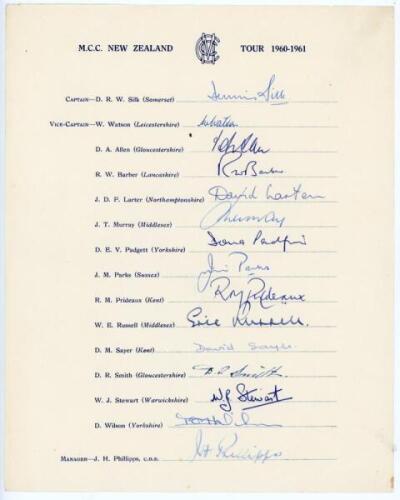 M.C.C. NEW ZEALAND MCC TOUR 1960-1961
CAPTAIN—D. R. W. SILK (Somerset) Dennis Silk
VICE-CAPTAIN—W. WATSON (Leicestershire) W Watson
D. A. ALLEN (Gloucestershire) D A Allen
R. W. BARBER (Lancashire) R W Barber
J. D. F. LARTER (Northamptonshire) David Larter
J. T. MURRAY (Middlesex) J Murray
D. E. V. PADGETT (Yorkshire) Doug Padgett
J. M. PARKS (Sussex) Jim Parks
R. M. PRIDEAUX (Kent) Roy Prideaux
W. E. RUSSELL (Middlesex) Eric Russell.
D. M. SAYER (Kent) David Sayer.
D. R. SMITH (Gloucestershire) D. R. Smith
W. J. STEWART (Warwickshire) W J Stewart
D. WILSON (Yorkshire)
MANAGER—J. H. PHILLIPPS, C.B.E. J H Phillipps